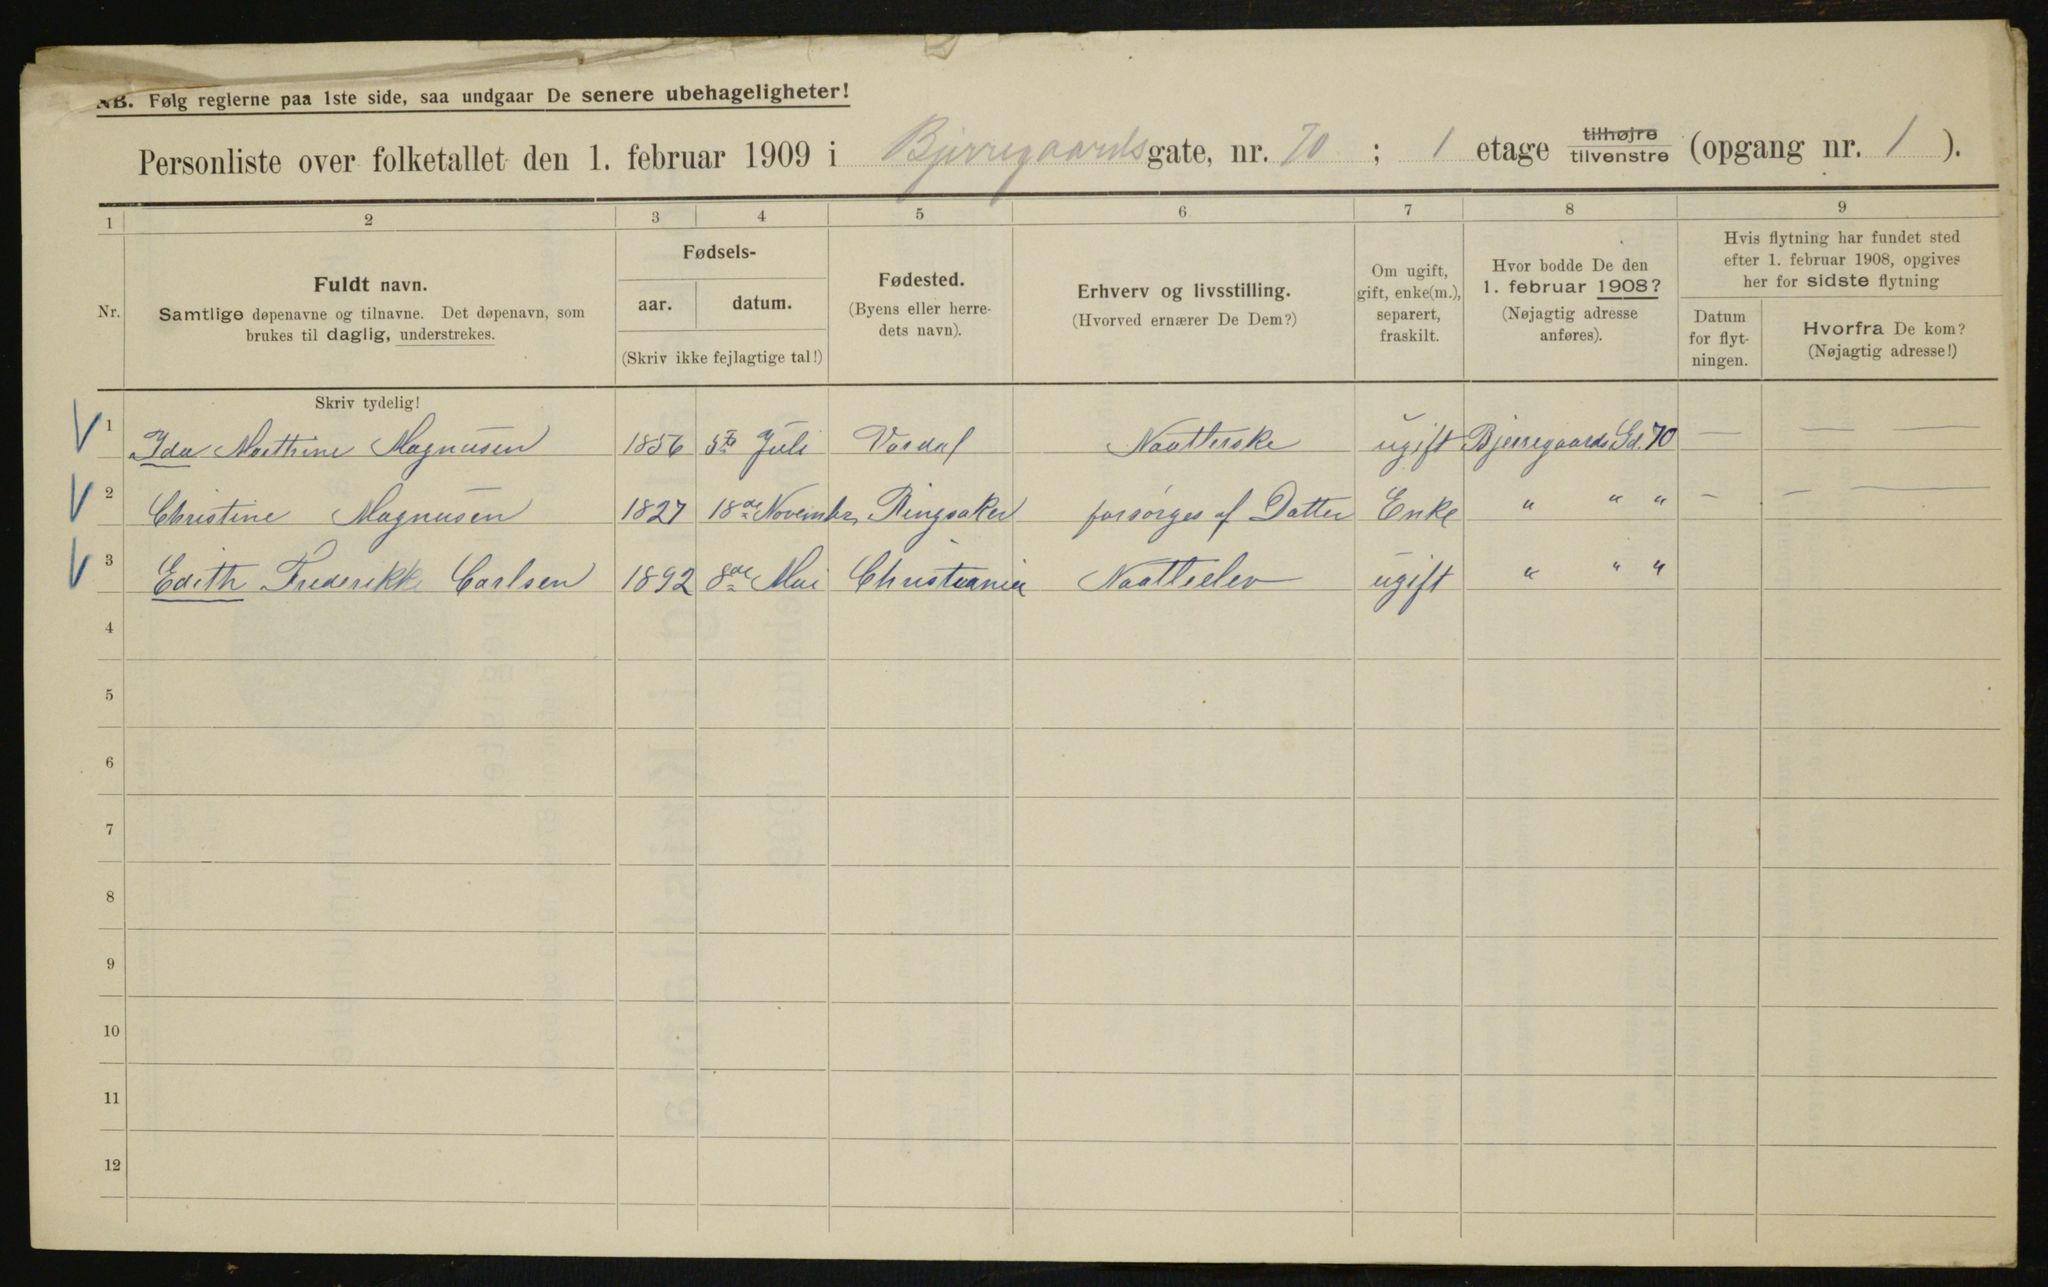 NB. Følg reglerne paa 1ste side, saa undgaar De senere ubehageligheter!
Personliste over folketallet den 1. februar 1909 i Bjerregaardsgate, nr. 70 ; 1 etage tilhøjre tilvenstre (opgang nr. 1 ).
1 2 3 4 5 6 7 8 9
Nr.
Fuldt navn.
Samtlige døpenavne og tilnavne. Det døpenavn, som
brukes til daglig, understrekes.
Skriv tydelig!
Fødsels-
aar. datum.
(Skriv ikke fejlagtige tal!)
Fødested.
(Byens eller herre-
dets navn).
Erhverv og livsstilling.
(Hvorved ernærer De Dem?)
Om ugift,
gift, enke(m.),
separert,
fraskilt.
Hvor bodde De den
1. februar 1908?
(Nøjagtig adresse
anføres).
Hvis flytning har fundet sted
efter 1. februar 1908, opgives
her for sidste flytning
Datum
for flyt-
ningen.
Hvorfra De kom?
(Nøjagtig adresse!)
1 Ida Mathine Magnusen 1856 Juli Vardal ugift Bjerregaards Gd. 70 — — — —
2 Christine Magnusen 1827 18de Novembr Ringsaker forsørges af Datter Enke " " " — — —
3 Edith Frederikke Carlsen 1892 8de Mai Christiania ugift " " "
4
5
6
7
8
9
10
11
12